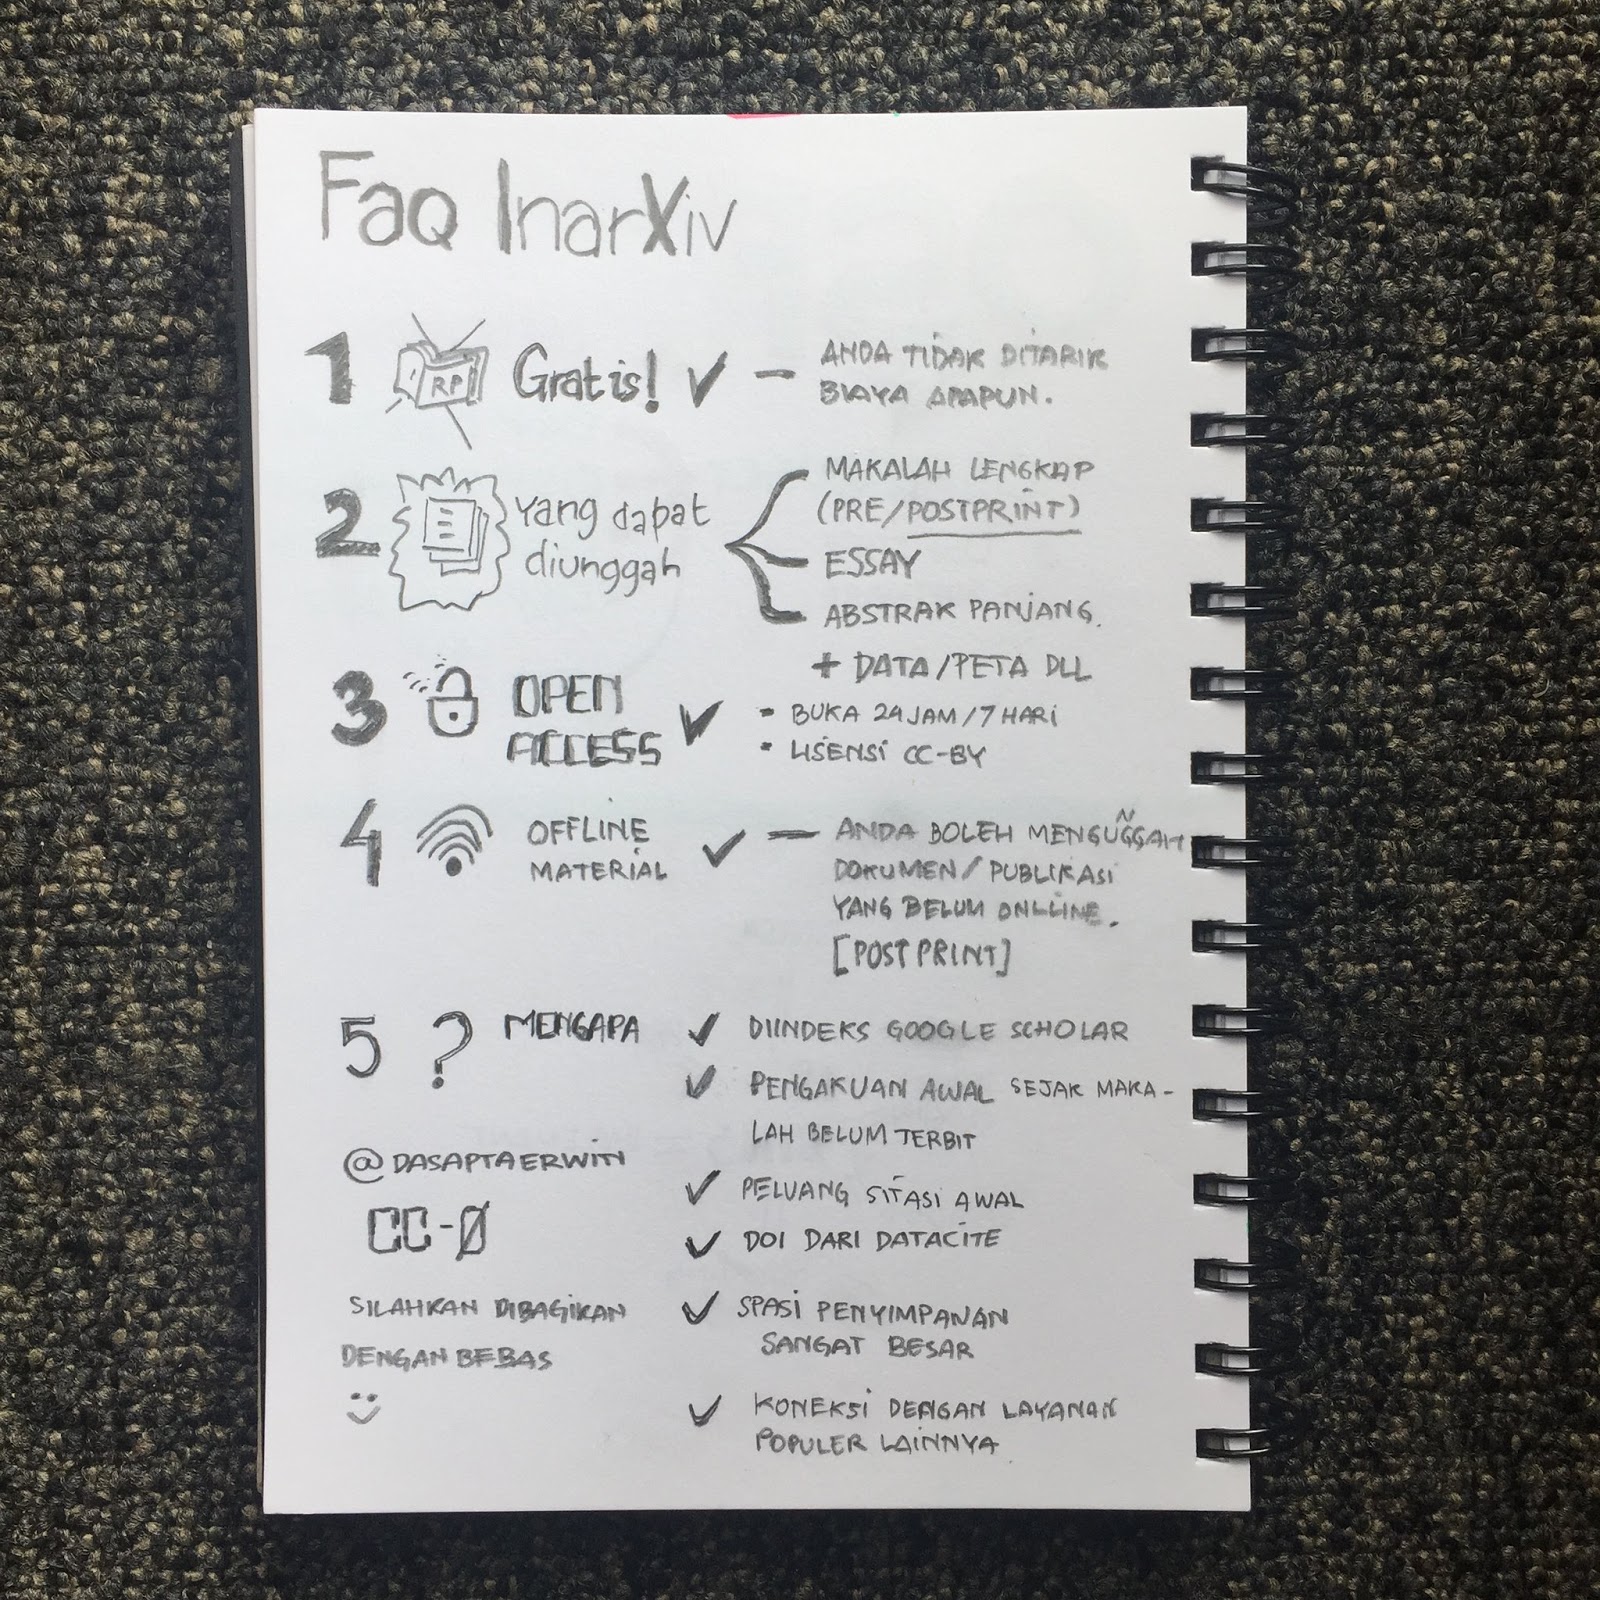 Faq InarXiv
1 RP Gratis! ✓ — ANDA TIDAK DITARIK
BIAYA APAPUN.
2 Yang dapat
diunggah
MAKALAH LENGKAP
(PRE/POSTPRINT)
ESSAY
ABSTRAK PANJANG.
+ DATA/PETA DLL
3 OPEN
ACCESS ✓
• BUKA 24 JAM/7 HARI
• LISENSI CC-BY
4 OFFLINE
MATERIAL ✓
— ANDA BOLEH MENGUNGGAH
DOKUMEN/PUBLIKASI
YANG BELUM ONLLINE.
[POST PRINT]
5 ? MENGAPA
✓ DIINDEKS GOOGLE SCHOLAR
✓ PENGAKUAN AWAL SEJAK MAKA-
LAH BELUM TERBIT
✓ PELUANG SITASI AWAL
✓ DOI DARI DATACITE
✓ SPASI PENYIMPANAN
SANGAT BESAR
✓ KONEKSI DENGAN LAYANAN
POPULER LAINNYA
@DASAPTAERWIN
CC-0
SILAHKAN DIBAGIKAN
DENGAN BEBAS